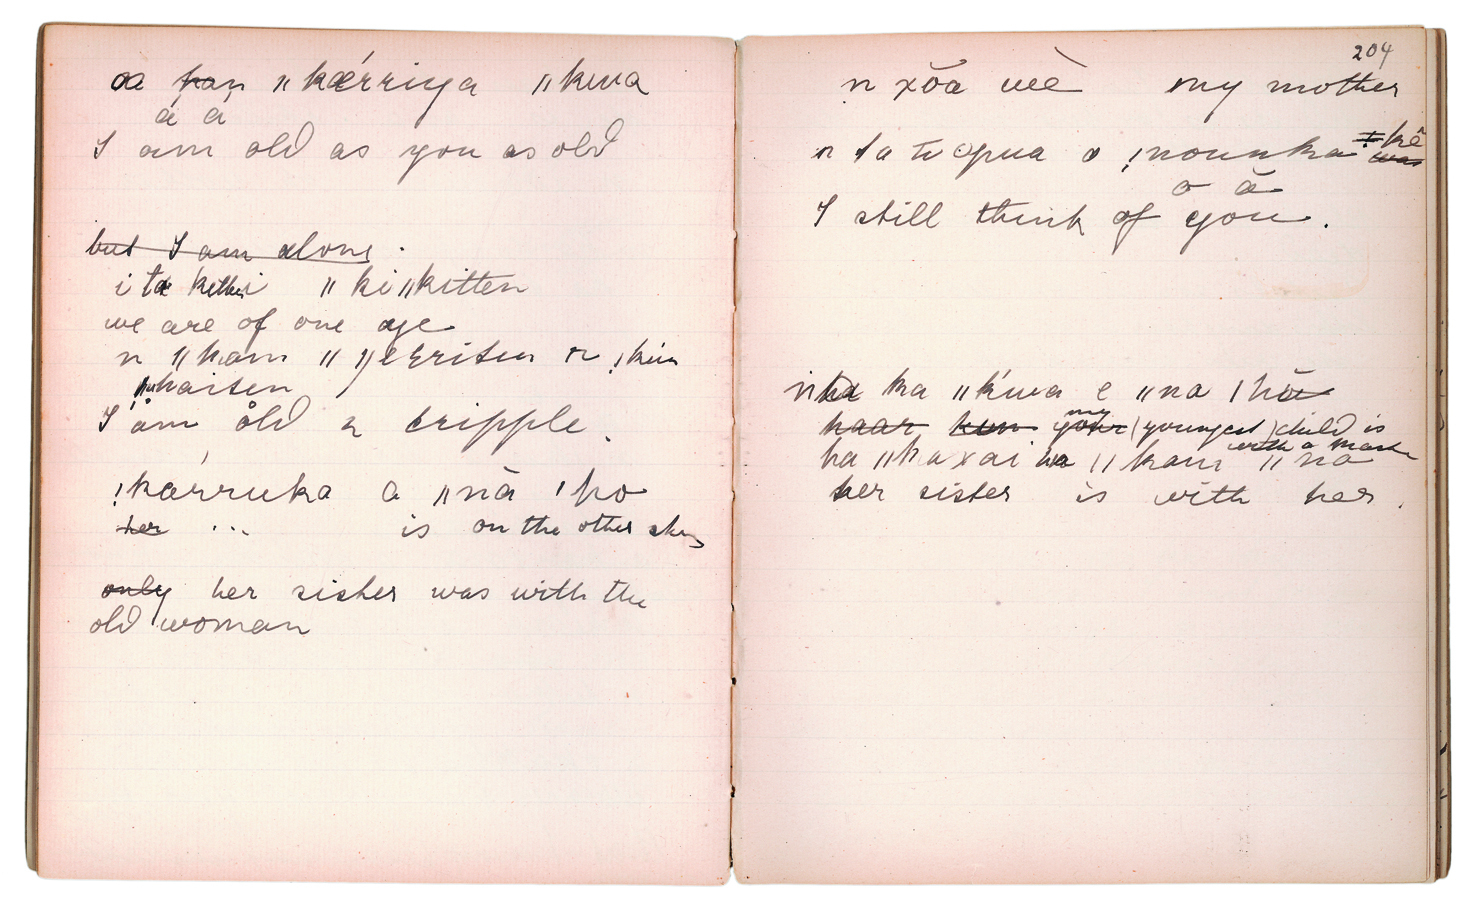 a ‖kǽrriya ‖kwa
á á
I am old as you as old
but I am alone.
i ta ‖ki‖kitten
we are of one age
n ‖kam ‖yerriten n !kun
‖khaiten
I am old n cripple.
!kárruka a ‖nā
her ... is on the other
only her sister was with the
old woman
204
n xŏa wè my mother
n ta ti o !nounka !kê
was
o ā
I still think of you.
ka ‖k'wa e ‖na
haar kun your my (youngest) child is
with a
ha ‖kaxai ha ‖kam ‖na
her sister is with her.